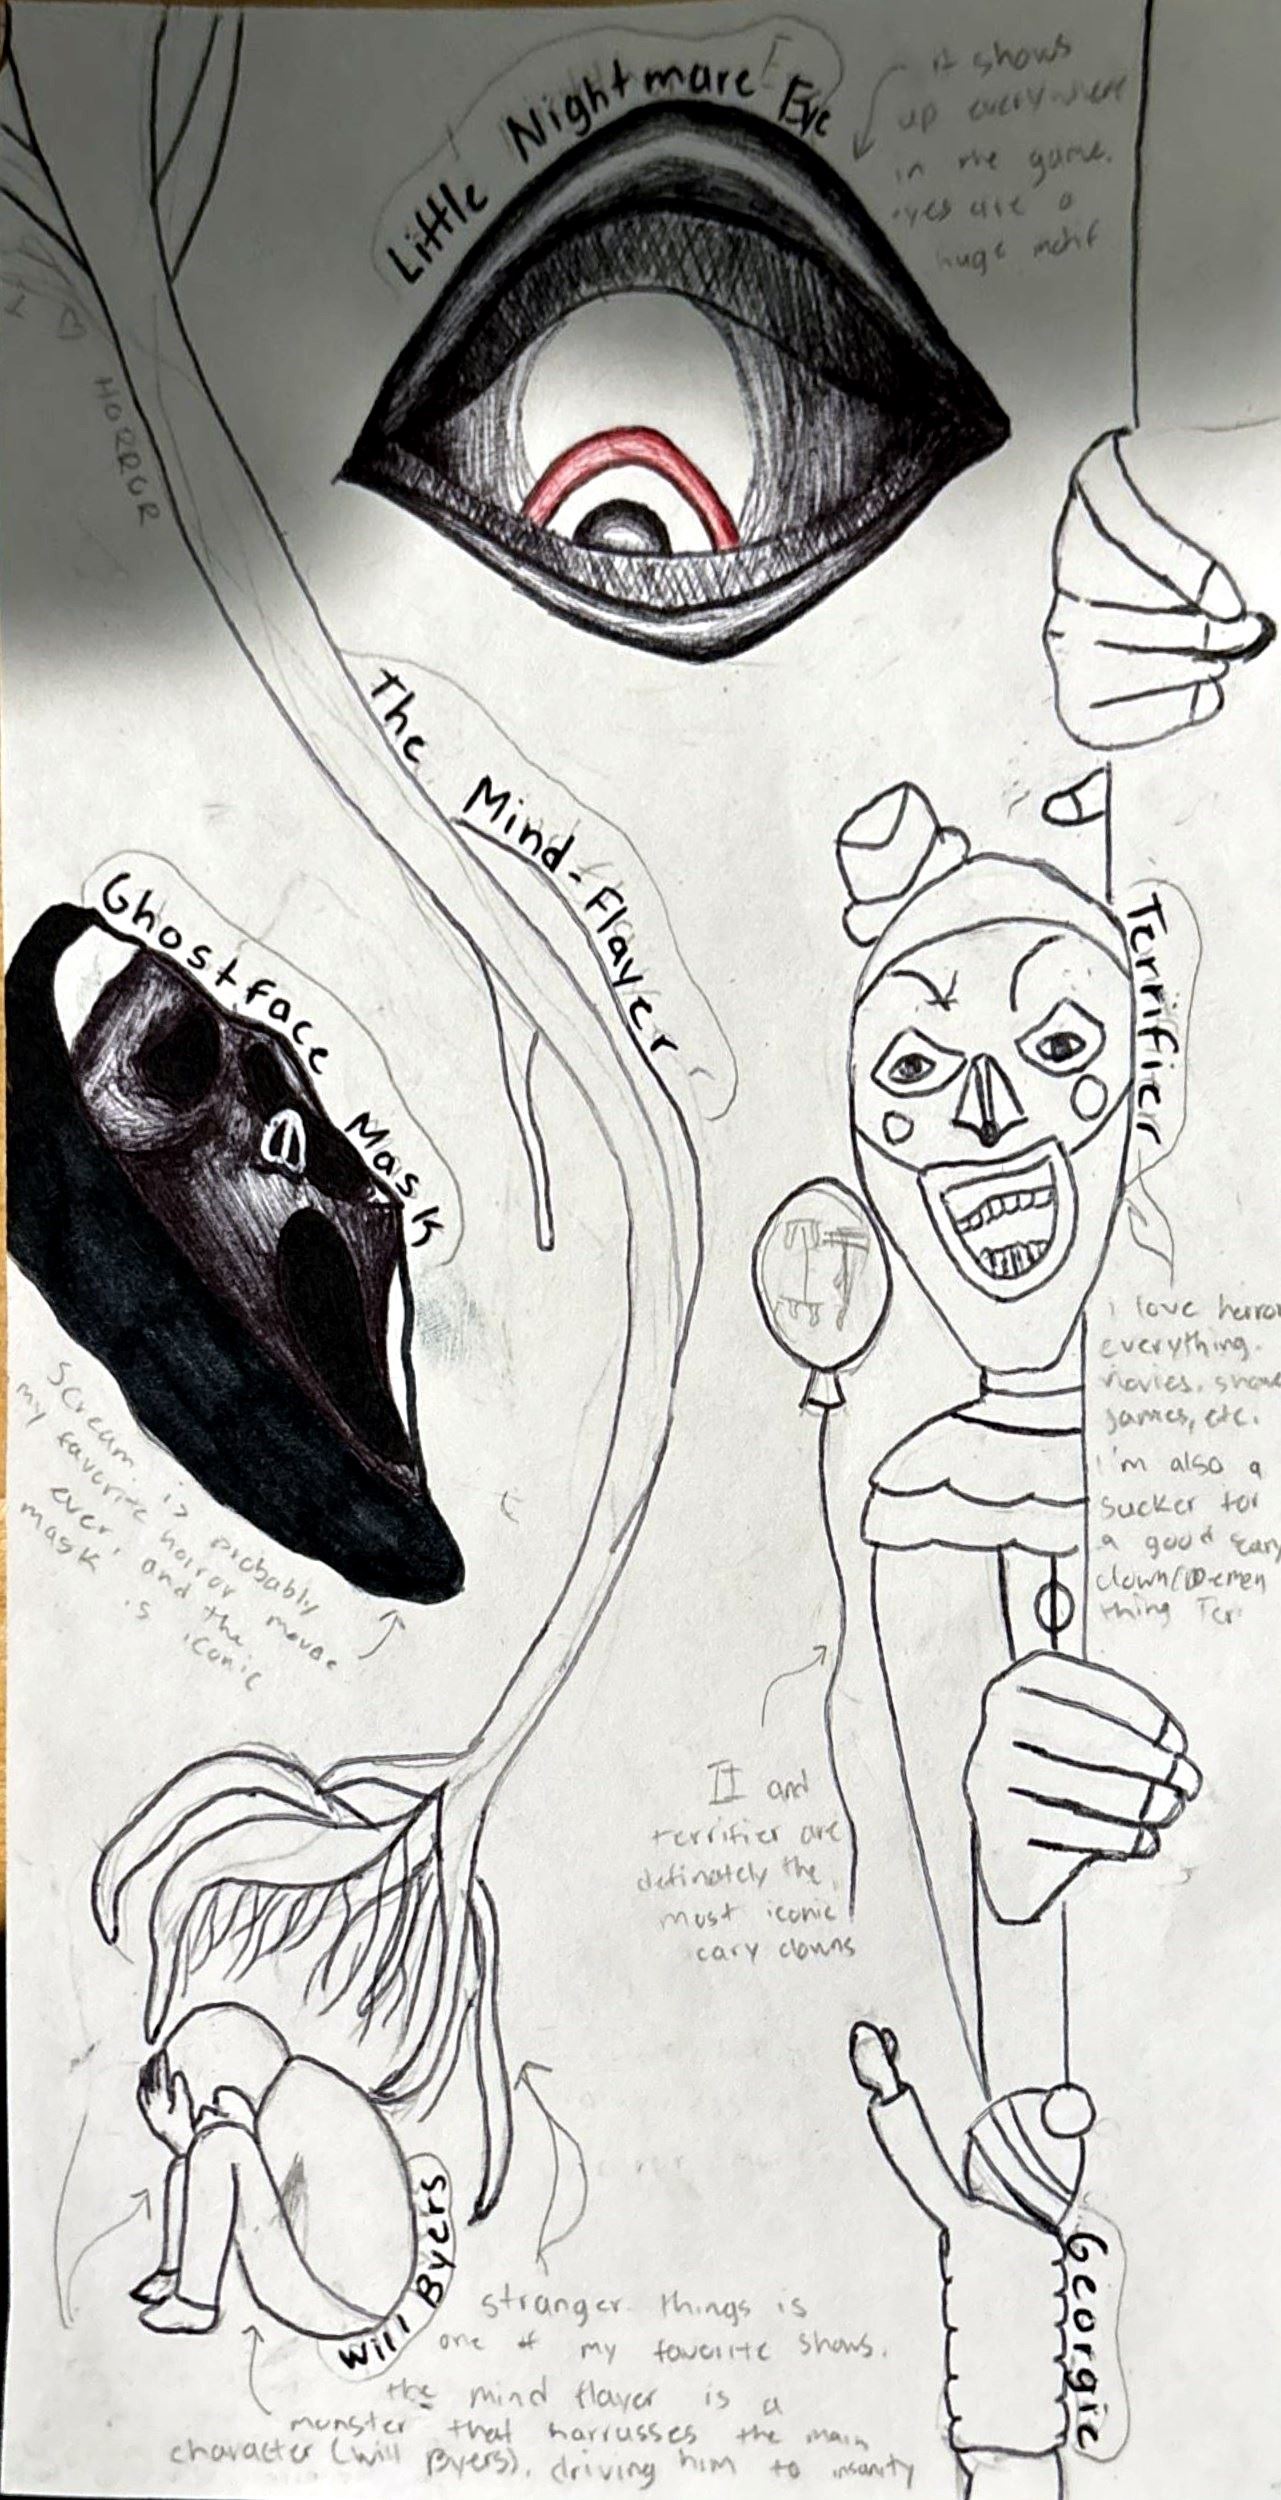 Little Nightmare Eye
it shows
up everywhere
in the game.
eyes are a
huge motif
HORROR
The Mind-Flayer
Ghostface Mask
Terrifier
IT
i love horror
everything.
movies, shows
games, etc.
i'm also a
sucker for
a good scary
thing
Scream is probably
my favorite horror movie
ever, and the
mask is iconic
IT and
terrifier are
definately the
most iconic
cary clowns
Will Byers
Georgie
stranger things is
one of my favorite shows.
the mind flayer is a
monster that harrasses the main
character (will Byers), driving him to insanity